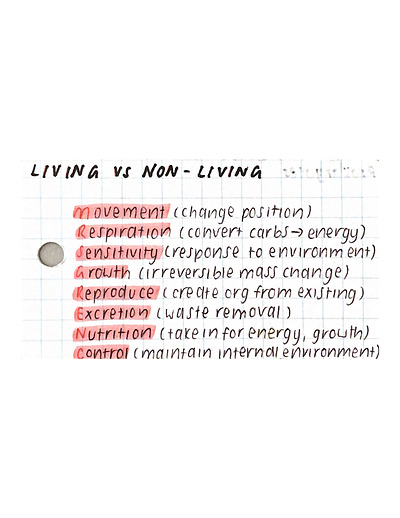 LIVING VS NON-LIVING
Movement (change position)
Respiration (convert carbs→ energy)
Sensitivity (response to environment)
Growth (irreversible mass change)
Reproduce (create org from existing)
Excretion (waste removal)
Nutrition (take in for energy, growth)
Control (maintain internal environment)